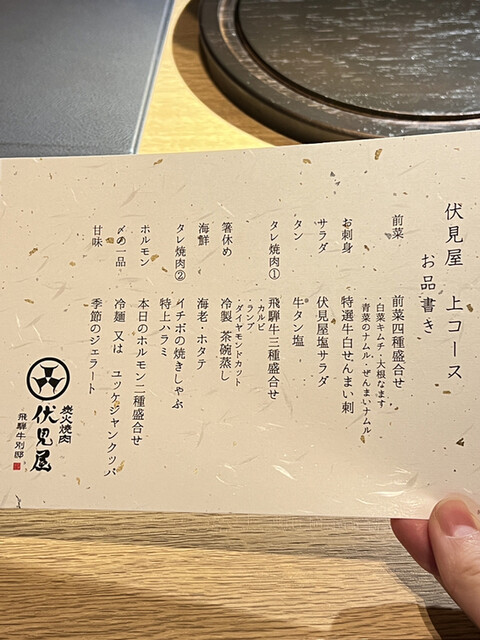 伏見屋 上コース
お品書き
前菜 前菜四種盛合せ
・白菜キムチ・大根なます
・青菜のナムル・ぜんまいナムル
お刺身 特選牛白せんまい刺
サラダ 伏見屋塩サラダ
タン 牛タン塩
タレ焼肉① 飛騨牛三種盛合せ
・カルビ
・ランプ
・ダイヤモンドカット
箸休め 冷製 茶碗蒸し
海鮮 海老・ホタテ
タレ焼肉② イチボの焼きしゃぶ
特上ハラミ
ホルモン 本日のホルモン二種盛合せ
〆の一品 冷麺 又は ユッケジャンクッパ
甘味 季節のジェラート
炭火焼肉
伏見屋
飛騨牛別邸